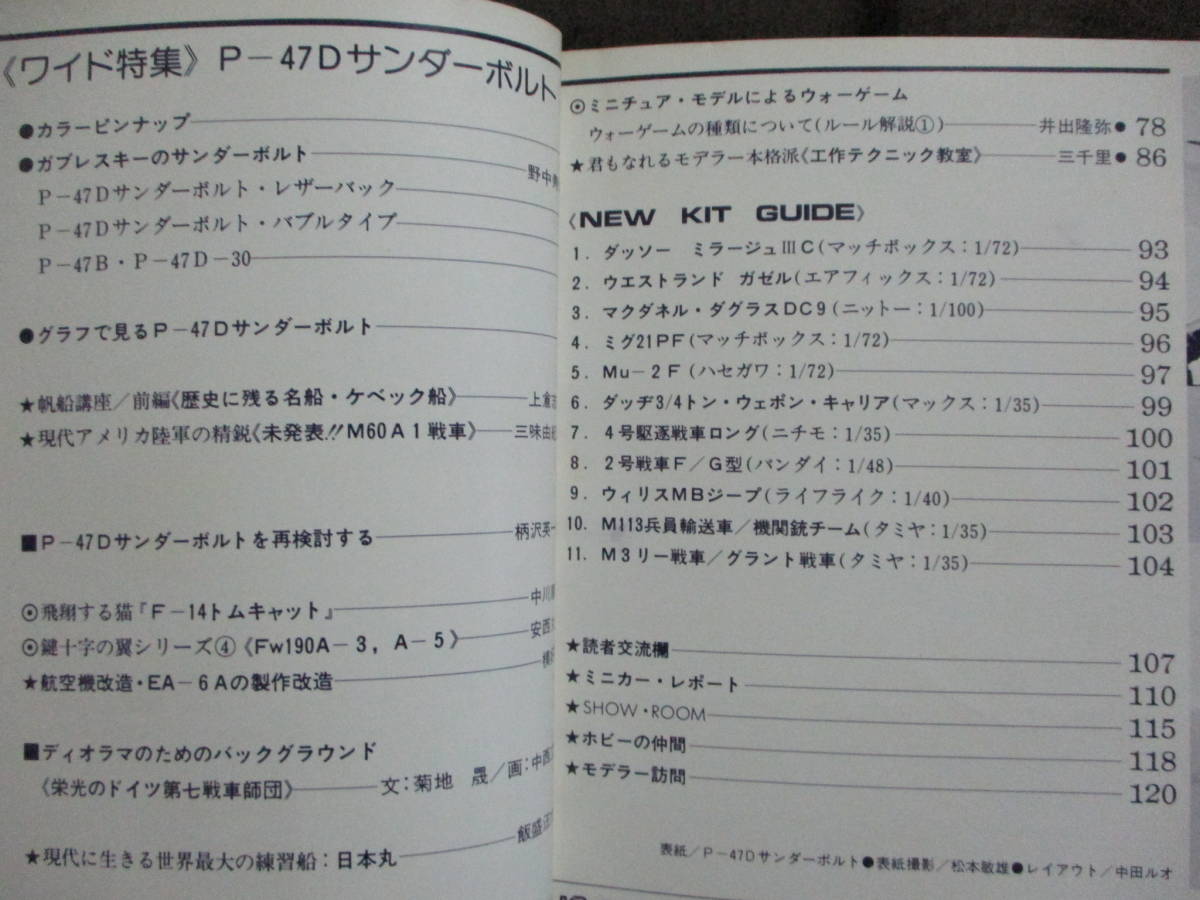 《ワイド特集》P−47Dサンダーボルト
●カラーピンナップ
●ガブレスキーのサンダーボルト
P−47Dサンダーボルト・レザーバック
P−47Dサンダーボルト・バブルタイプ
P−47B・P−47D−30
●グラフで見るP−47Dサンダーボルト
★帆船講座／前編《歴史に残る名船・ケベック船》
★現代アメリカ陸軍の精鋭《未発表!!M60A1戦車》
■P−47Dサンダーボルトを再検討する 柄沢英一
⊙飛翔する猫『F−14トムキャット』 中川
⊙鍵十字の翼シリーズ④《Fw190A−3，A−5》 安西
★航空機改造・EA−6Aの製作改造
■ディオラマのためのバックグラウンド
《栄光のドイツ第七戦車師団》 文：菊地　晟／画：中西
★現代に生きる世界最大の練習船：日本丸 飯盛
⊙ミニチュア・モデルによるウォーゲーム
ウォーゲームの種類について(ルール解説①) 井出隆弥● 78
★君もなれるモデラー本格派《工作テクニック教室》 三千里● 86
《NEW KIT GUIDE》
1．ダッソー　ミラージュⅢC(マッチボックス：1/72) 93
2．ウエストランド　ガゼル(エアフィックス：1/72) 94
3．マクダネル・ダグラスDC9(ニットー：1/100) 95
4．ミグ21PF(マッチボックス：1/72) 96
5．Mu−2F(ハセガワ：1/72) 97
6．ダッヂ3/4トン・ウェポン・キャリア(マックス：1/35) 99
7．4号駆逐戦車ロング(ニチモ：1/35) 100
8．2号戦車F／G型(バンダイ：1/48) 101
9．ウィリスMBジープ(ライフライク：1/40) 102
10．M113兵員輸送車／機関銃チーム(タミヤ：1/35) 103
11．M3リー戦車／グラント戦車(タミヤ：1/35) 104
★読者交流欄 107
★ミニカー・レポート 110
★SHOW・ROOM 115
★ホビーの仲間 118
★モデラー訪問 120
表紙／P−47Dサンダーボルト●表紙撮影／松本敏雄●レイアウト／中田ルオ